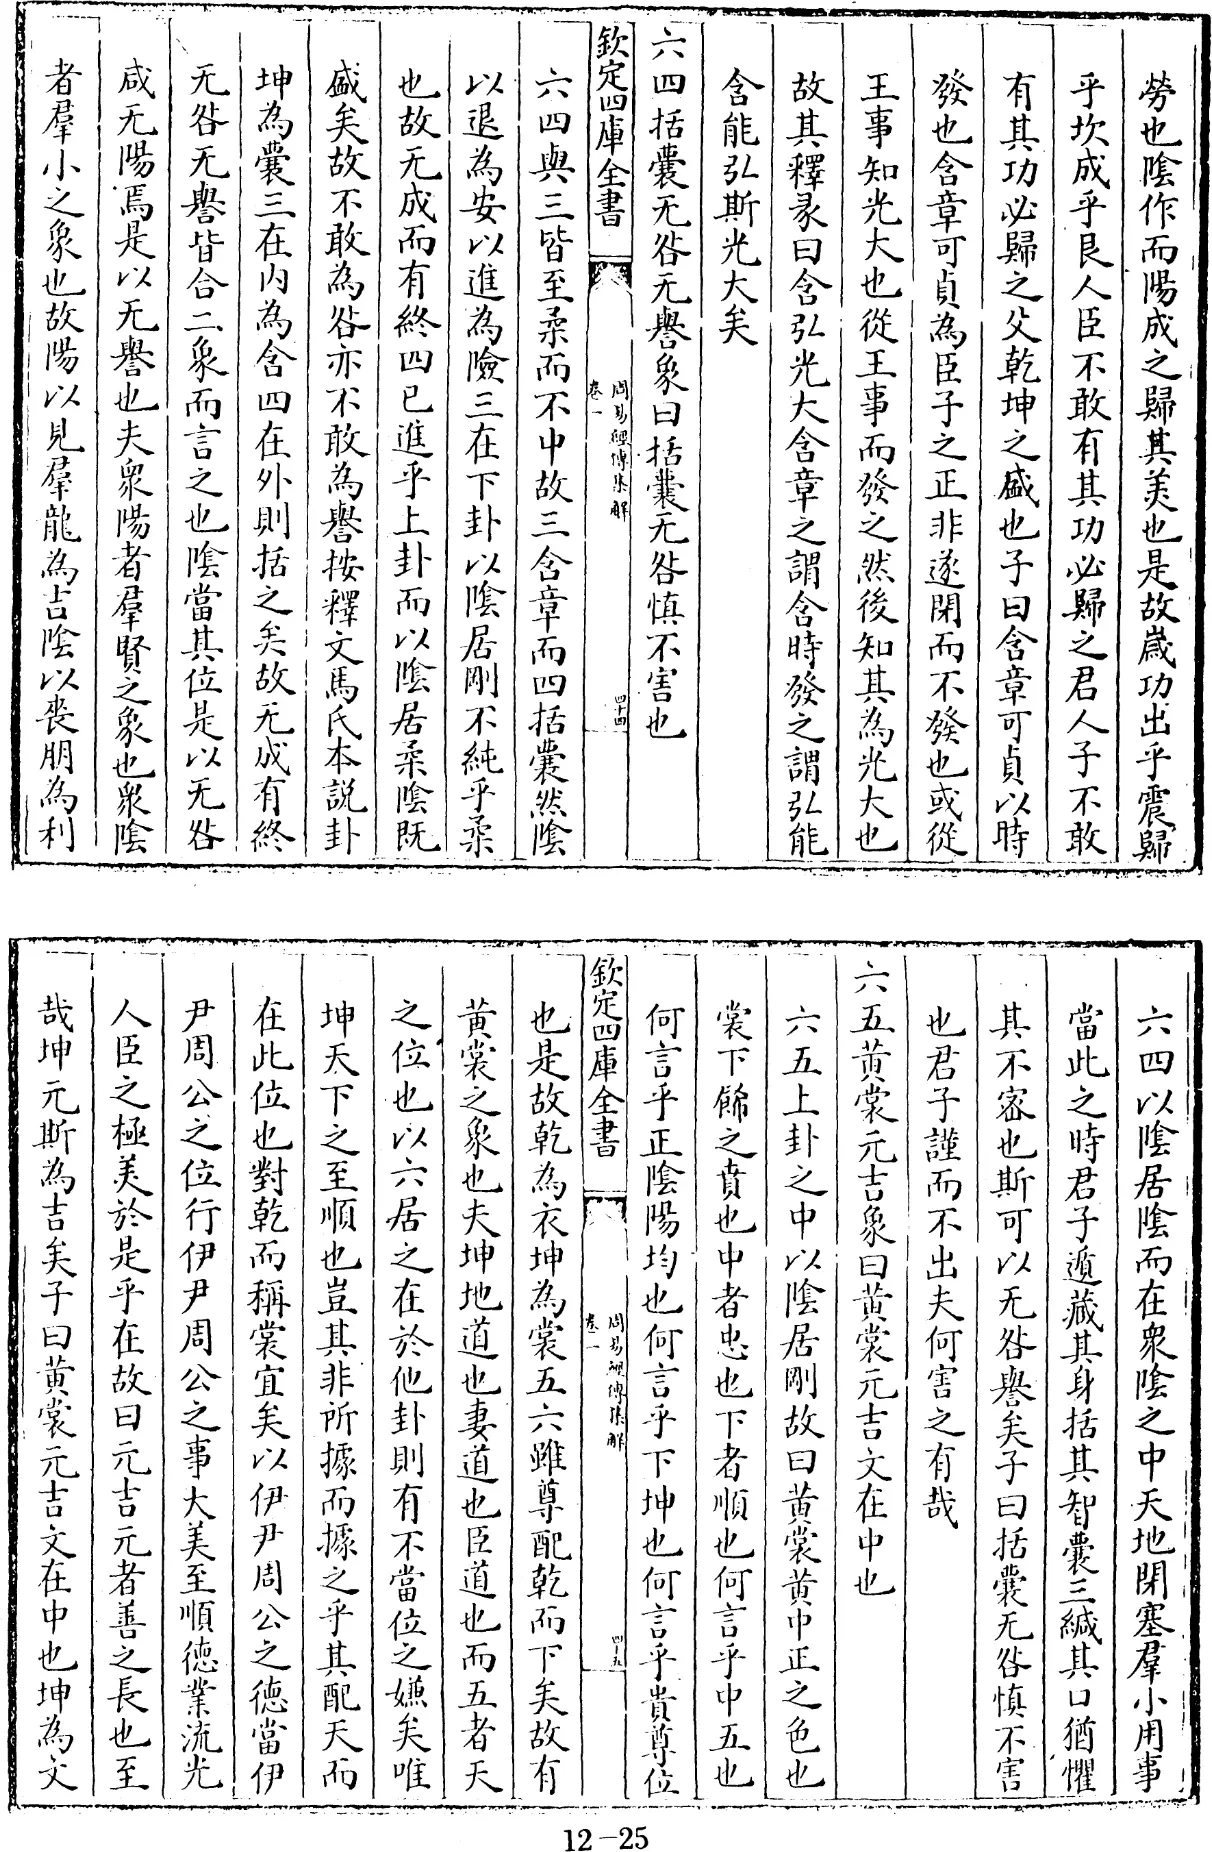 勞也陰作而陽成之歸其美也是故歲功出乎震歸
乎坎成乎艮人臣不敢有其功必歸之君人子不敢
有其功必歸之父乾坤之盛也子曰含章可貞以時
發也含章可貞為臣子之正非遂閉而不發也或從
王事知光大也從王事而發之然後知其為光大也
故其釋彖曰含弘光大含章之謂含時發之謂弘能
含能弘斯光大矣
六四括囊无咎无譽象曰括囊无咎慎不害也
欽定四庫全書
周易經傳集解
卷一
四十四
六四與三皆至柔而不中故三含章而四括囊然陰
以退為安以進為險三在下卦以陰居剛不純乎柔
也故无成而有終四已進乎上卦而以陰居柔陰既
盛矣故不敢為咎亦不敢為譽按釋文馬氏本說卦
坤為囊三在内為含四在外則括之矣故无成有終
无咎无譽皆合二象而言之也陰當其位是以无咎
咸无陽焉是以无譽也夫衆陽者羣賢之象也衆陰
者羣小之象也故陽以見羣龍為吉陰以喪朋為利
六四以陰居陰而在衆陰之中天地閉塞羣小用事
當此之時君子遁藏其身括其智囊三緘其口猶懼
其不密也斯可以无咎譽矣子曰括囊无咎慎不害
也君子謹而不出夫何害之有哉
六五黄裳元吉象曰黄裳元吉文在中也
六五上卦之中以陰居剛故曰黄裳黄中正之色也
裳下飾之賁也中者忠也下者順也何言乎中五也
何言乎正陰陽均也何言乎下坤也何言乎貴尊位
欽定四庫全書
周易經傳集解
卷一
四十五
也是故乾為衣坤為裳五六雖尊配乾而下矣故有
黄裳之象也夫坤地道也妻道也臣道也而五者天
之位也以六居之在於他卦則有不當位之嫌矣唯
坤天下之至順也豈其非所據而據之乎其配天而
在此位也對乾而稱裳宜矣以伊尹周公之德當伊
尹周公之位行伊尹周公之事大美至順德業流光
人臣之極美於是乎在故曰元吉元者善之長也至
哉坤元斯為吉矣子曰黄裳元吉文在中也坤為文
12-25